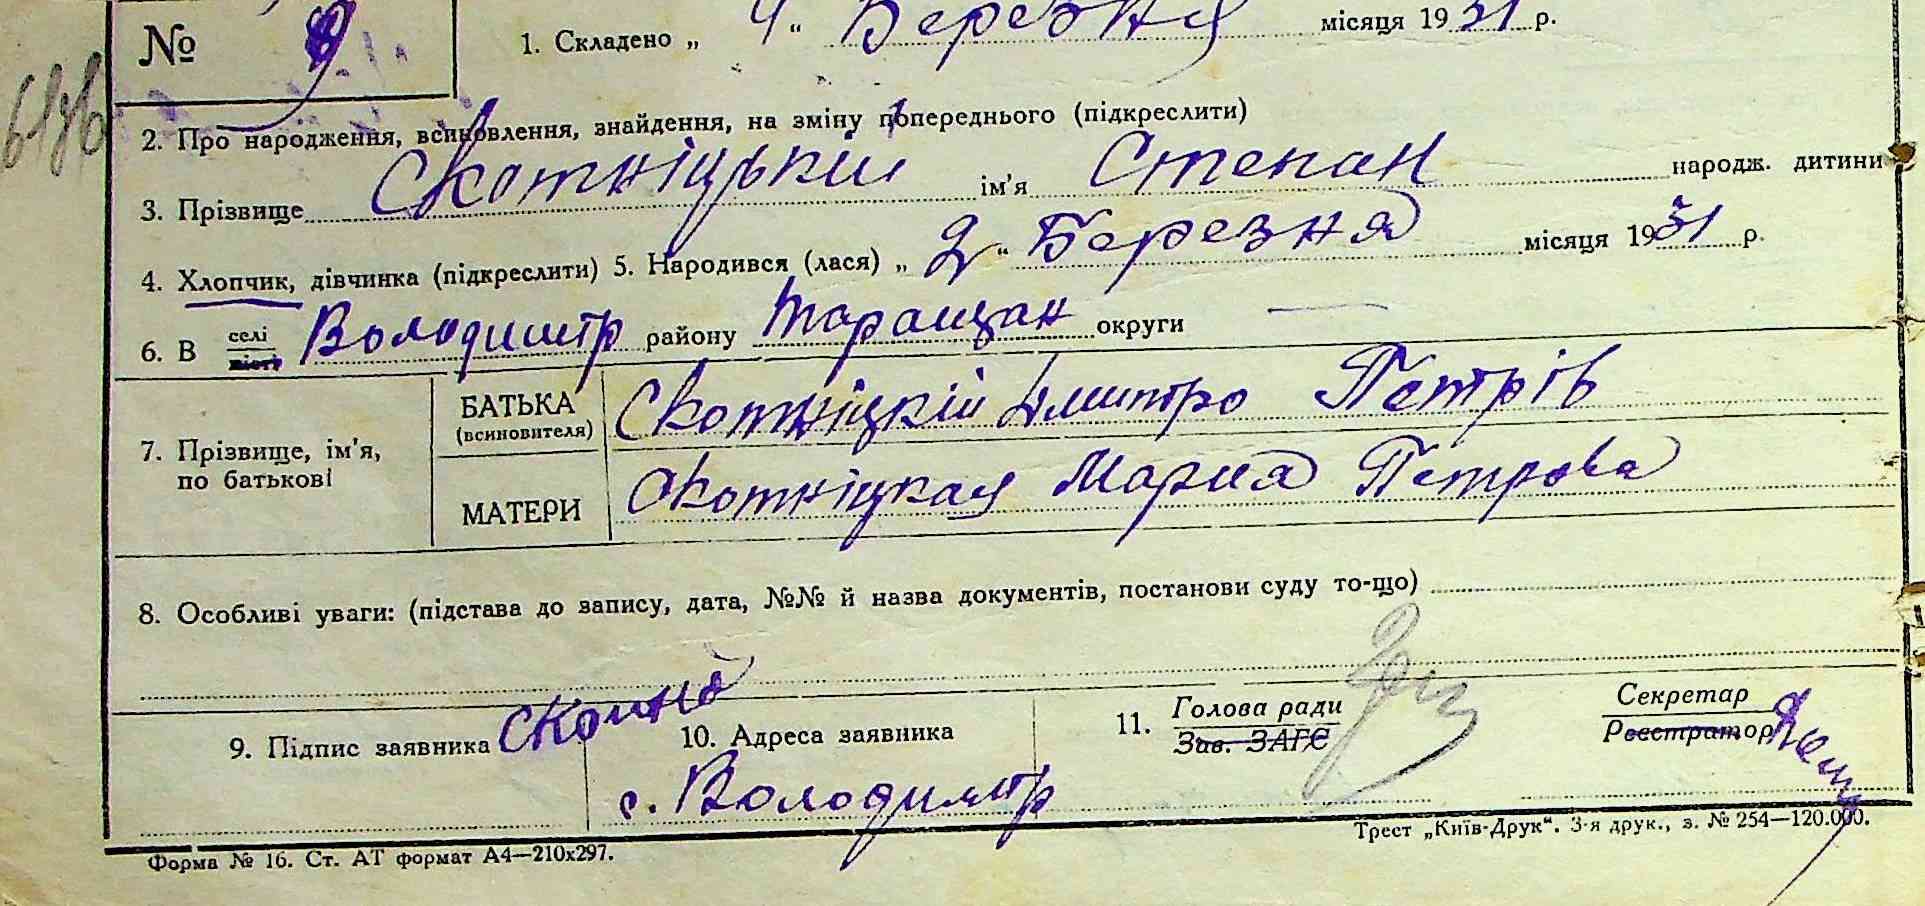 № 9
1. Складено „ 4 “ Березня місяця 1931 р.
2. Про народження, всиновлення, знайдення, на зміну попереднього (підкреслити)
3. Прізвище Скотніцькій ім'я Степан народж. дитини
4. Хлопчик, дівчинка (підкреслити) 5. Народився (лася) „ 2 “ Березня місяця 1931 р.
6. В селі місті Володимтр району Таращан округи —
7. Прізвище, ім'я, по батькові
БАТЬКА (всиновителя) Скотніцкій Дмитро Петрів
МАТЕРИ Скотніцкая Мария Петрова
8. Особливі уваги: (підстава до запису, дата, №№ й назва документів, постанови суду то-що)
9. Підпис заявника
10. Адреса заявника
с. Володимтр
11. Голова ради
Зав. ЗАГС
Секретар
Реєстратор
Трест „Київ-Друк“. 3-я друк., з. № 254—120.000.
Форма № 16. Ст. АТ формат А4—210х297.